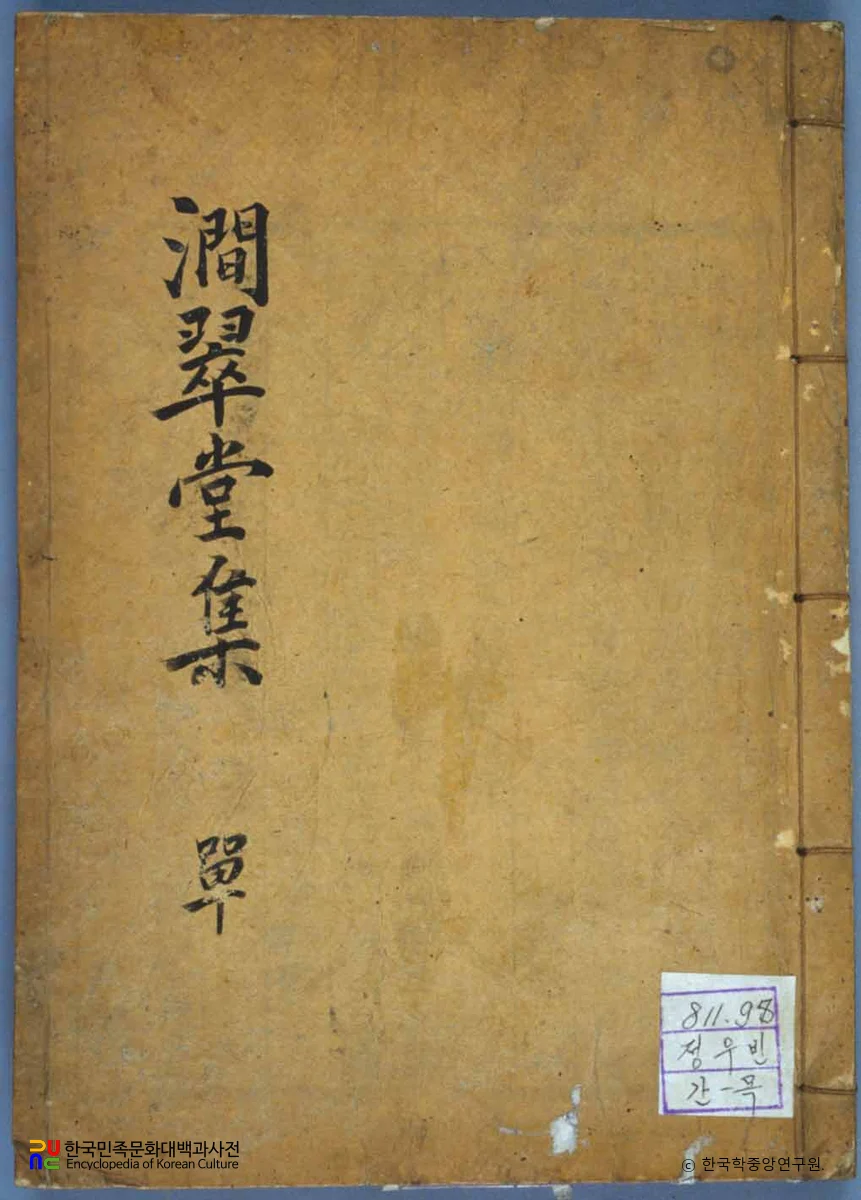 澗翠堂集
單
811.98
정우빈
간-목
한국민족문화대백과사전
Encyclopedia of Korean Culture
ⓒ 한국학중앙연구원